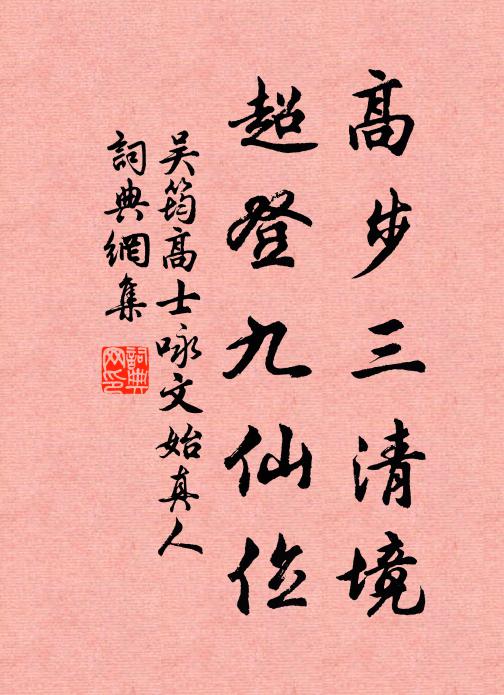 高步三清境
超登九仙位
吴筠高士咏文始真人
詞典網集
詞典網印